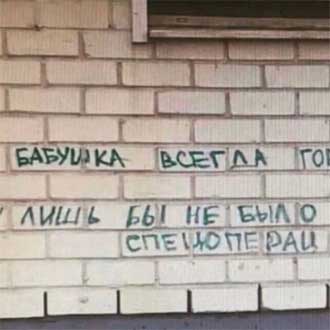 БАБУШКА ВСЕГДА ГОВ
ЛИШЬ БЫ НЕ БЫЛО
СПЕЦОПЕРАЦ